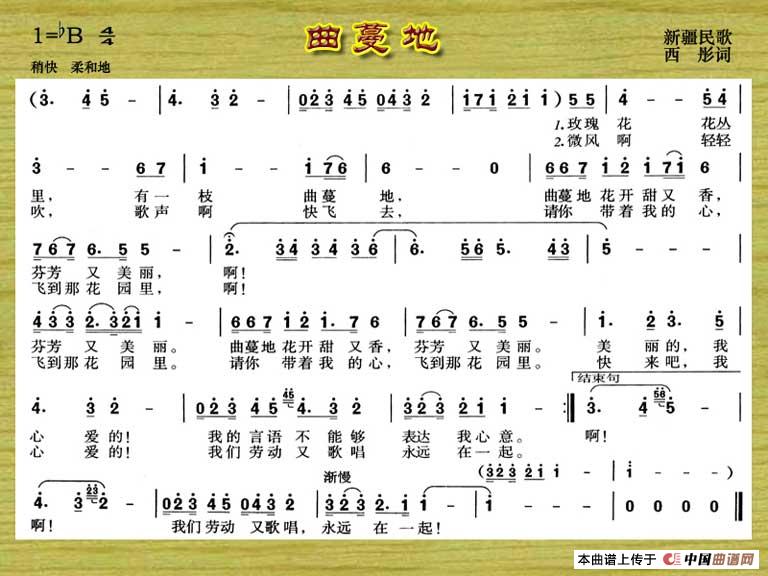 1=♭B 4/4
曲蔓地
新疆民歌
西 彤词
稍快 柔和地
(3. 4 5 - | 4. 3 2 - | 0 2 3 4 5 0 4 3 2 | 1 7 1 2 1 1) 5 5 | 4 - - 5 4 |
1.玫瑰 花 花丛
2.微风 啊 轻轻
3 - - 6 7 | 1 - - 1 7 6 | 6 - - 0 | 6 6 7 1 2 1 7 1 6 |
里, 有一 枝 曲蔓 地, 曲蔓地 花开 甜又 香,
吹, 歌声 啊 快飞 去, 请你 带着 我的 心,
7 6 7 6. 5 5 - | 2. 3 4 3 4 3 6 | 6. 5 6 5. 4 3 | 5 - - 0 |
芬芳 又 美丽, 啊!
飞到那 花 园里, 啊!
4 3 3 2. 3 2 1 1 - | 6 6 7 1 2 1. 7 6 | 7 6 7 6. 5 5 - | 1. 2 3. 5 |
芬芳 又 美丽。 曲蔓地 花开 甜 又香, 芬芳 又 美丽。 美 丽的, 我
飞到那 花 园里。 请你 带着 我 的心, 飞到那 花 园里。 快 来吧, 我
结束句
4. 3 2 - | 0 2 3 4 5 4. 3 | 3 2 3 2. 1 1 - :| 3. 4 5 - |
心 爱的! 我的 言语 不 能够 表达 我 心意。 啊!
心 爱的! 我们 劳动 又 歌唱 永远 在 一起。
渐慢
(3 2 3 2 1 1 - | 1 - - -)
4. 3 2 - | 0 2 3 4 5 0 4 3 2 | 3 2 3 2. 1 1 | 1 - - - | 0 0 0 0 |
啊! 我们劳动 又歌唱, 永远 在 一起!
本曲谱上传于 中国曲谱网